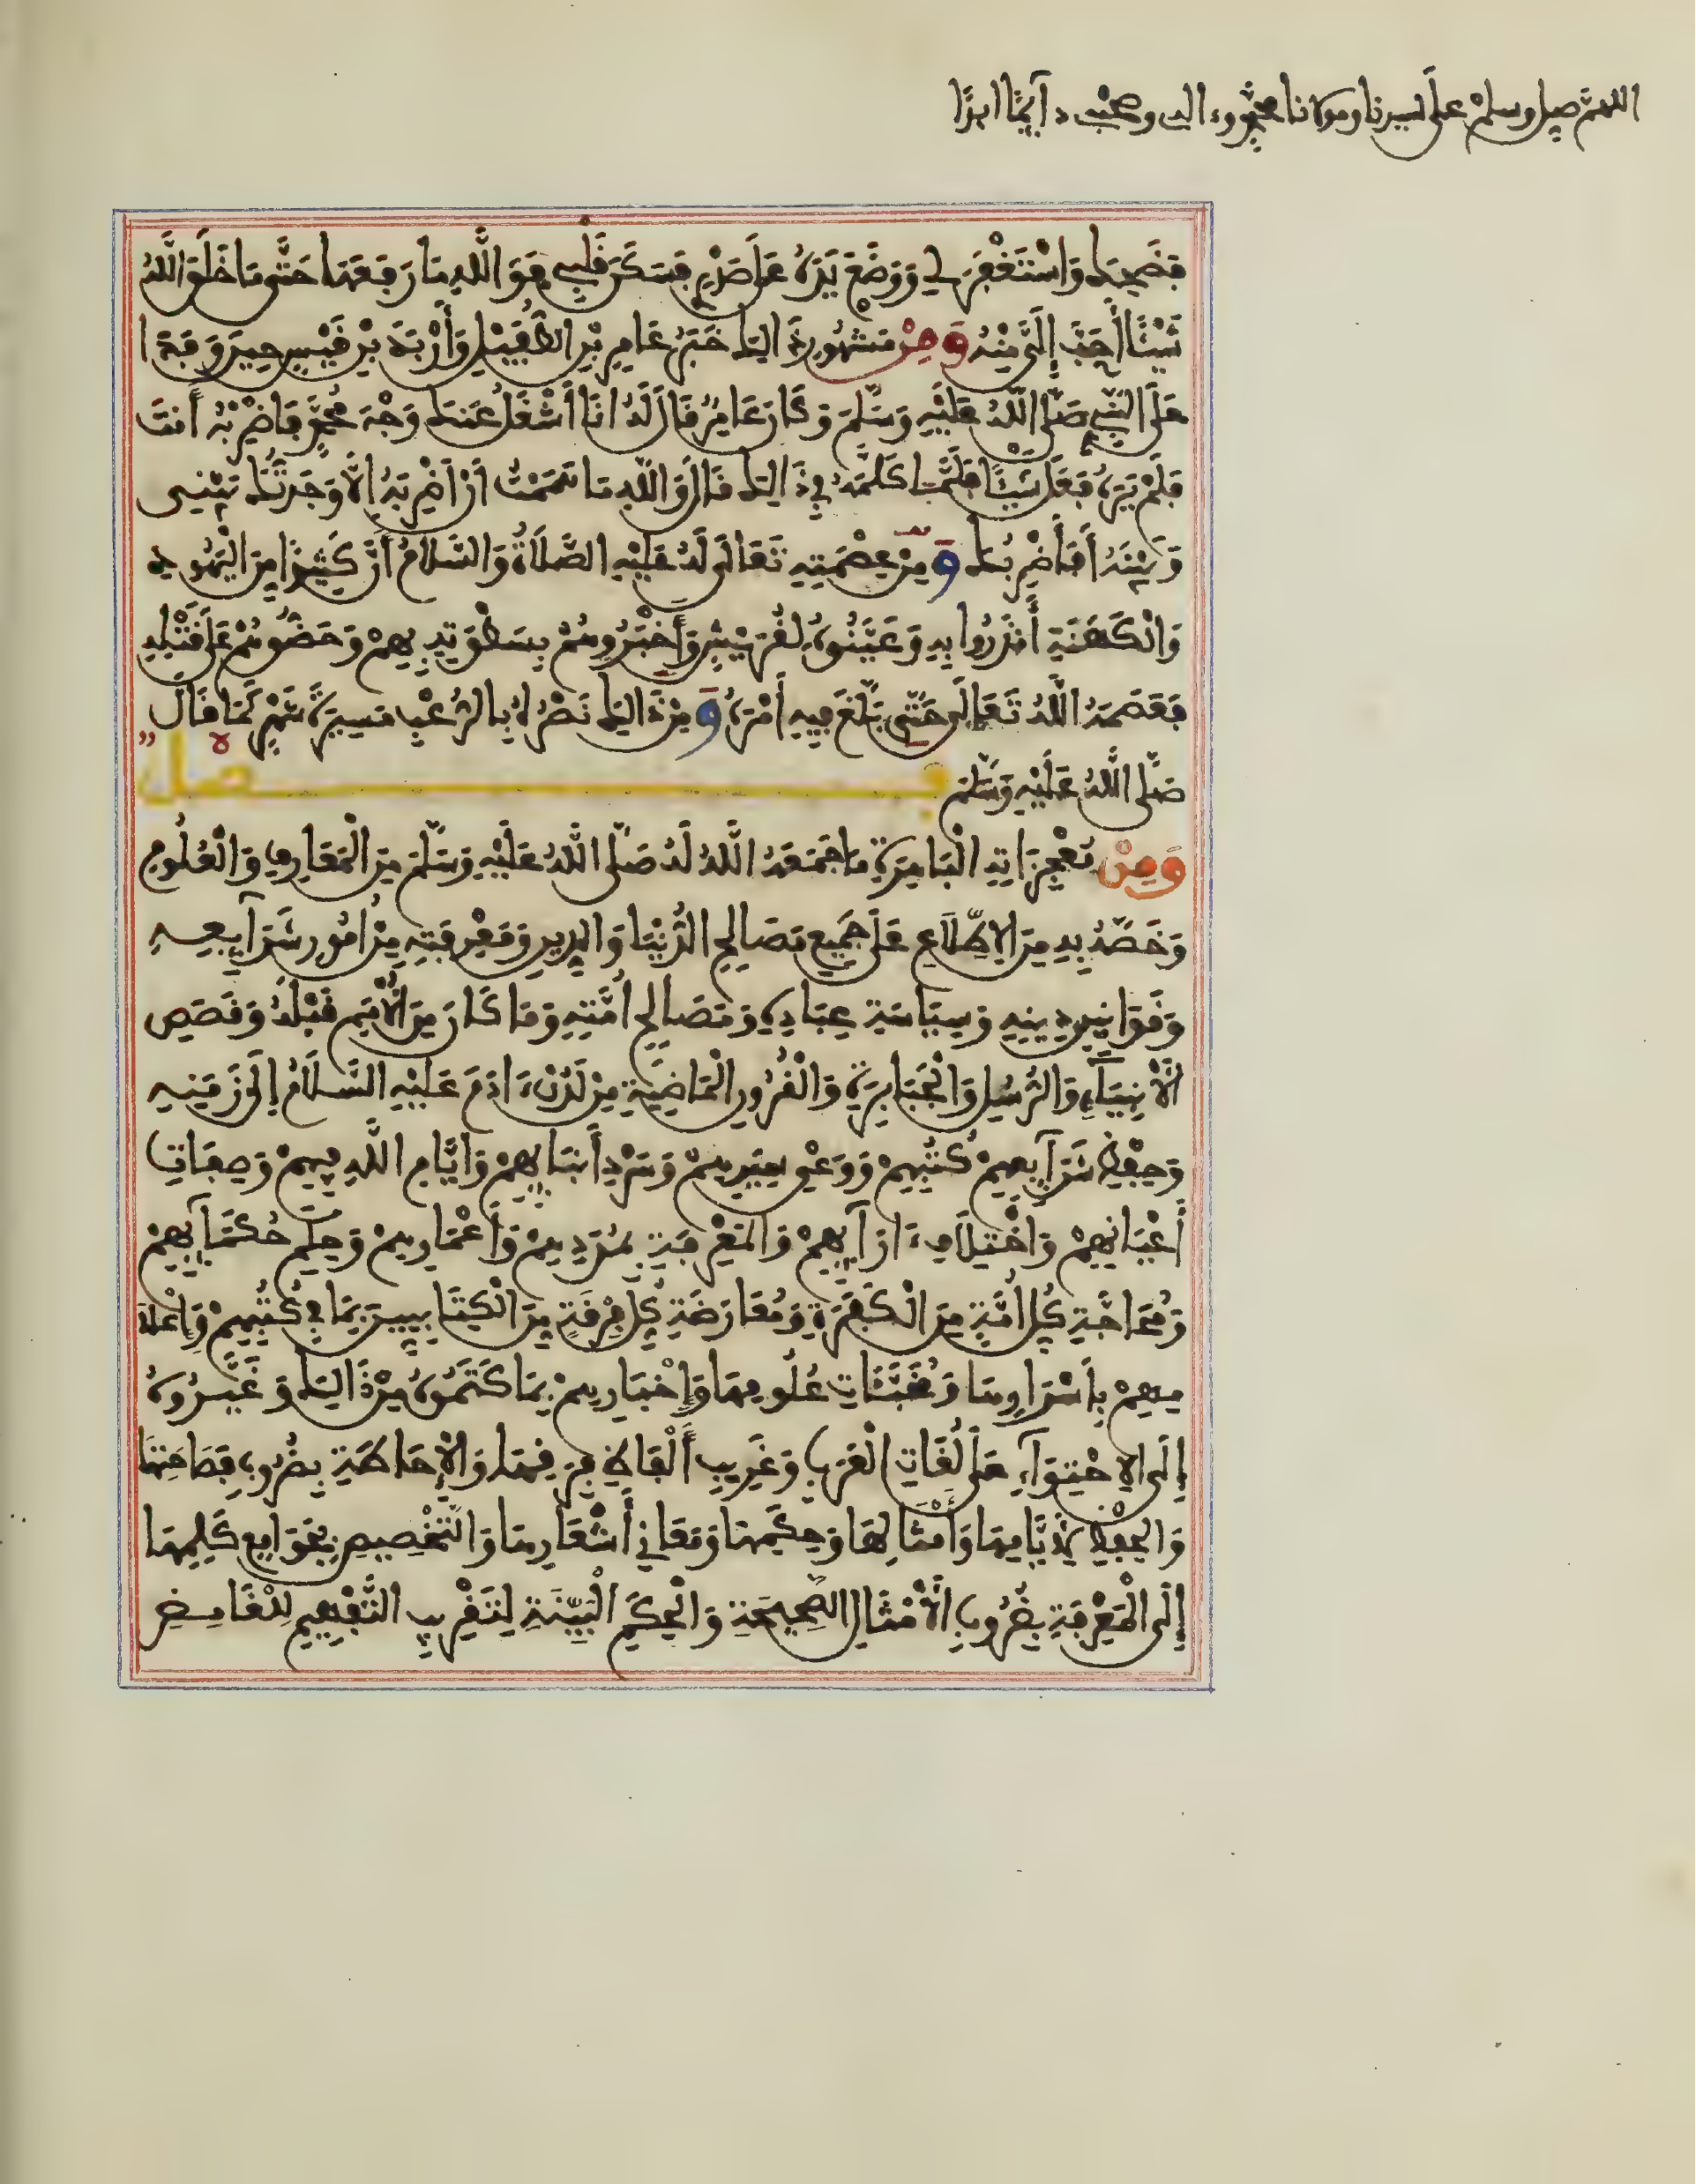 اللهم صل وسلم على سيدنا ومولانا محمد وءاله وصحبه دآيما ابدا
فَضَحِكَ وَاسْتَغْفَرَ لِي وَوَضَعَ يَدَهُ عَلَى صَدْرِي فَسَكَنَ قَلْبِي فَوَاللَّهِ مَا رَفَعَهَا حَتَّى مَا خَلَقَ اللَّهُ
شَيْئًا أَحَبَّ إِلَيَّ مِنْهُ وَمِنْ مَشْهُورِ ذَالِكَ خَبَرُ عَامِرِ بْنِ الطُّفَيْلِ وَأَرْبَدَ بْنِ قَيْسٍ حِينَ وَفَدَا
عَلَى النَّبِيِّ صَلَّى اللَّهُ عَلَيْهِ وَسَلَّمَ وَكَانَ عَامِرٌ قَالَ لَهُ انَا أَشْغَلُ عَنكَ وَجْهَ مُحَمَّدٍ فَاضْرِبْهُ أَنتَ
فَلَمْ يَرَهُ فَعَلَ شَيْئًا فَلَمَّا كَلَّمَهُ فِي ذَالِكَ قَالَ وَاللَّهِ مَا هَمَمْتُ أَنْ أَضْرِبَهُ إِلَّا وَجَدتُّكَ بَيْنِي
وَبَيْنَهُ أَفَأَضْرِبُكَ وَمِنْ عِصْمَتِهِ تَعَالَى لَهُ عَلَيْهِ الصَّلَاةُ وَالسَّلَامُ أَنَّ كَثِيرًا مِنَ الْيَهُودِ
وَالْكَهَنَةِ أَنذَرُوا بِهِ وَعَيَّنُوهُ لِقُرَيْشٍ وَأَخْبَرُوهُمْ بِسَطْوَتِهِ بِهِمْ وَحَضُّوهُمْ عَلَى قَتْلِهِ
فَعَصَمَهُ اللَّهُ تَعَالَى حَتَّى بَلَغَ فِيهِ أَمْرَهُ وَمِنْ ذَالِكَ نَصْرُهُ بِالرُّعْبِ مَسِيرَةَ شَهْرٍ كَمَا قَالَ
صَلَّى اللَّهُ عَلَيْهِ وَسَلَّمَ فصل
وَمِنْ مُعْجِزَاتِهِ الْبَاهِرَةِ مَا جَمَعَهُ اللَّهُ لَهُ صَلَّى اللَّهُ عَلَيْهِ وَسَلَّمَ مِنَ الْمَعَارِفِ وَالْعُلُومِ
وَخَصَّهُ بِهِ مِنَ الِاطِّلَاعِ عَلَى جَمِيعِ مَصَالِحِ الدُّنْيَا وَالدِّينِ وَمَعْرِفَتِهِ مِنْ أُمُورِ شَرَآيِعِهِ
وَقَوَانِينِ دِينِهِ وَسِيَاسَةِ عِبَادِهِ وَمَصَالِحِ أُمَّتِهِ وَمَا كَانَ مِنَ الْأُمَمِ قَبْلَهُ وَقَصَصِ
الْأَنبِيَآءِ وَالرُّسُلِ وَالْجَبَابِرَةِ وَالْقُرُونِ الْمَاضِيَةِ مِنْ لَدُنْ ءَادَمَ عَلَيْهِ السَّلَامُ إِلَى زَمَنِهِ
وَحِفْظِ شَرَآيِعِهِمْ كُتُبِهِمْ وَوَعْيِ سِيَرِهِمْ وَسَرْدِ أَنبَائِهِمْ وَأَيَّامِ اللَّهِ فِيهِمْ وَصِفَاتِ
أَعْيَانِهِمْ وَاخْتِلَافِ ءَارَآيِهِمْ وَالْمَعْرِفَةِ بِمُدَدِهِمْ وَأَعْمَارِهِمْ وَحِكَمِ حُكَمَآيِهِمْ
وَمُحَاجَّةِ كُلِّ أُمَّةٍ مِنَ الْكَفَرَةِ وَمُعَارَضَةِ كُلِّ فِرْقَةٍ مِنَ الْكِتَابِيِّينَ بِمَا فِي كُتُبِهِمْ وَإِعْلَا
مِهِمْ بِأَسْرَارِهَا وَمُخَبَّئَاتِ عُلُومِهَا وَإِخْبَارِهِمْ بِمَا كَتَمُوهُ مِنْ ذَالِكَ وَغَيَّرُوهُ
إِلَى الِاحْتِوَآءِ عَلَى لُغَاتِ الْعَرَبِ وَغَرِيبِ أَلْفَاظِ فِرَقِهَا وَالْإِحَاطَةِ بِضُرُوبِ فَصَاحَتِهَا
وَالْحِفْظِ لِأَيَّامِهَا وَأَمْثَالِهَا وَحِكَمِهَا وَمَعَانِي أَشْعَارِهَا وَالتَّخْصِيصِ بِجَوَامِعِ كَلِمِهَا
إِلَى الْمَعْرِفَةِ بِضُرُوبِ الْأَمْثَالِ الصَّحِيحَةِ وَالْحِكَمِ الْبَيِّنَةِ لِتَقْرِيبِ التَّفْهِيمِ لِلْغَامِضِ